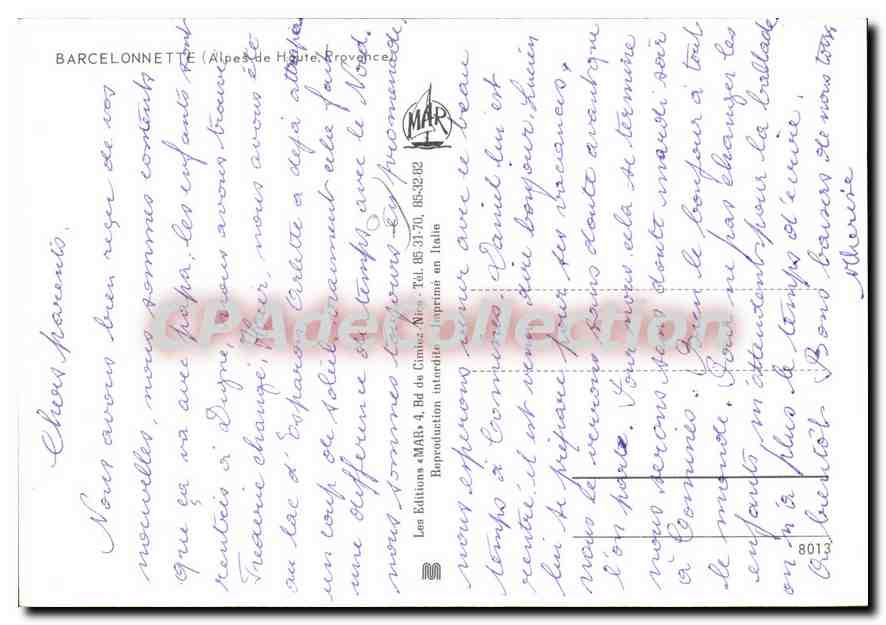 BARCELONNETTE (Alpes de Haute Provence)
Chers parents.
Nous avons bien reçer de vos
nouvelles, nous sommes contents
que ça va avec papa, les enfants sont
rentrés à Digne, nous avons trouvé
Frédéric changé, Hier, nous avons été
au lac d'Esparon Arlette a déjà attrapé
un coup de soleil vraiment cela fait
une différence de temps avec le Nord.
nous sommes toujours en promenade
nous esperons venir avec ce beau
temps à Comines Daniel lui est
rentré il est venu dire bonjour, Lucien
lui se prépare pour ses vacances.
nous le verrons sans doute avant que
l'on parte. Pour nous cela se termine
nous serons sans doute mardi soir
à Comines. Bien le bonjour à tout
le monde. Pour ne pas changer les
enfants m'attendent pour la ballade
on n'a plus le temps d'écrire.
A bientôt Bons baisers de nous tous
MAR
Les Editions «MAR» 4, Bd de Cimiez - Nice - Tél. 85-31-70, 85-32-82
Reproduction interdite - Imprimé en Italie
8013
CPAdeCollection